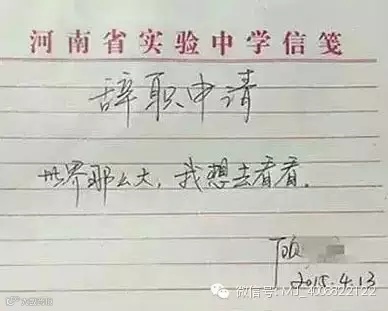 河南省实验中学信笺
辞职申请
世界那么大，我想去看看。
顾
2015.4.13
微信号: MJ_400822122